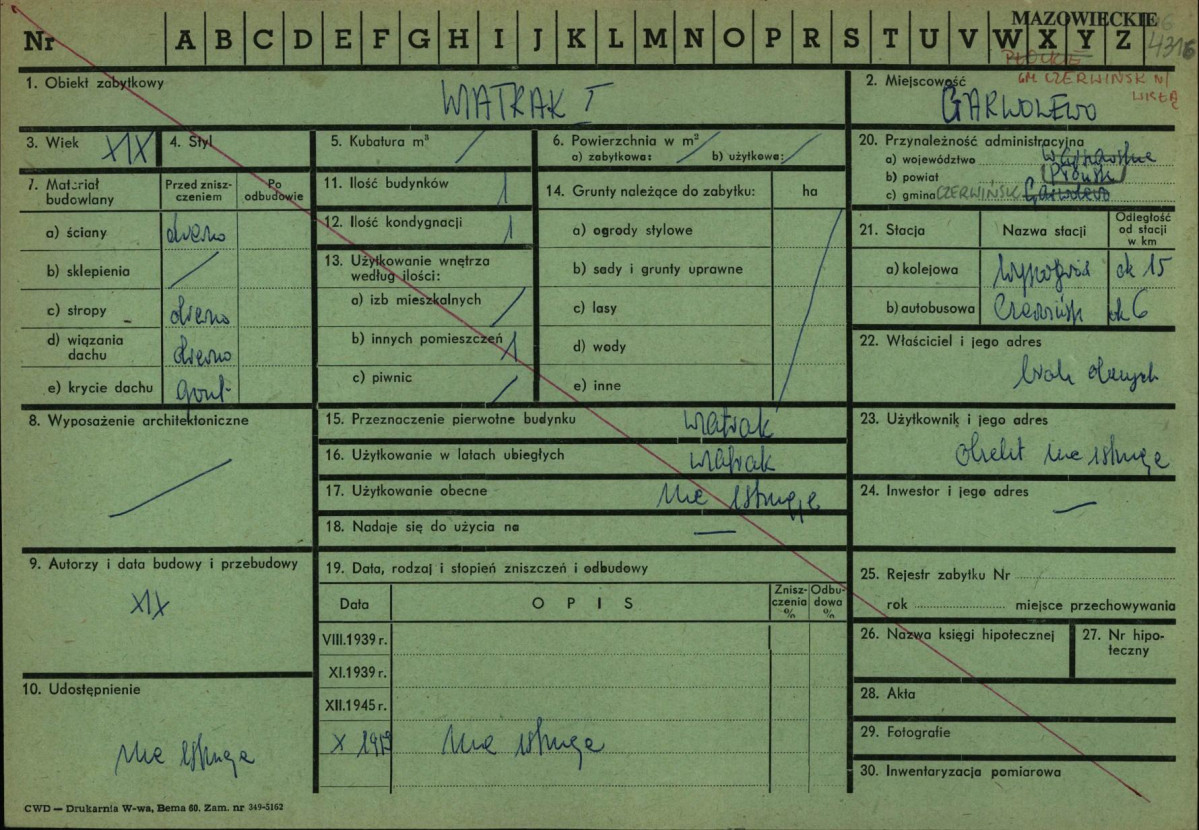 MAZOWIECKIE
Nr A B C D E F G H I J K L M N O P R S T U V W X Y Z
4316
PŁOCKIE
GM CZERWIŃSK N/
WISŁĄ
1. Obiekt zabytkowy
WIATRAK I
2. Miejscowość
GARWOLEWO
3. Wiek XIX
4. Styl
5. Kubatura m³
6. Powierzchnia w m²
a) zabytkowa: b) użytkowa:
7. Materiał budowlany
Przed zniszczeniem
Po odbudowie
a) ściany drewno
b) sklepienia
c) stropy drewno
d) wiązania dachu drewno
e) krycie dachu gont
8. Wyposażenie architektoniczne
9. Autorzy i data budowy i przebudowy
XIX
10. Udostępnienie
nie istnieje
11. Ilość budynków 1
12. Ilość kondygnacji 1
13. Użytkowanie wnętrza według ilości:
a) izb mieszkalnych
b) innych pomieszczeń 1
c) piwnic
14. Grunty należące do zabytku: ha
a) ogrody stylowe
b) sady i grunty uprawne
c) lasy
d) wody
e) inne
15. Przeznaczenie pierwotne budynku wiatrak
16. Użytkowanie w latach ubiegłych wiatrak
17. Użytkowanie obecne nie istnieje
18. Nadaje się do użycia na —
19. Data, rodzaj i stopień zniszczeń i odbudowy
Data OPIS Zniszczenia % Odbudowa %
VIII.1939 r.
XI.1939 r.
XII.1945 r.
X 1959 nie istnieje
20. Przynależność administracyjna
a) województwo warszawskie
b) powiat Płońsk
c) gmina CZERWIŃSK Garwolewo
21. Stacja Nazwa stacji Odległość od stacji w km
a) kolejowa Wyszogród ok 15
b) autobusowa Czerwińsk ok 6
22. Właściciel i jego adres
brak danych
23. Użytkownik i jego adres
obiekt nie istnieje
24. Inwestor i jego adres
—
25. Rejestr zabytku Nr
rok miejsce przechowywania
26. Nazwa księgi hipotecznej
27. Nr hipoteczny
28. Akta
29. Fotografie
30. Inwentaryzacja pomiarowa
CWD — Drukarnia W-wa, Bema 60. Zam. nr 349-5162